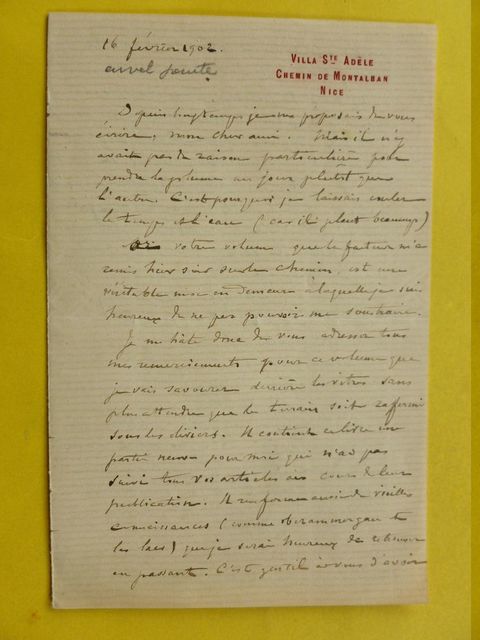 16 février 1902.
VILLA STE ADÈLE
CHEMIN DE MONTALBAN
NICE
Depuis longtemps je me proposais de vous
écrire, mon cher ami. Mais il n'y
avait pas de raison particulière pour
prendre la plume un jour plutôt que
l'autre. C'est pourquoi je laissais couler
le temps et l'eau (car il pleut beaucoup)
votre volume, que le facteur m'a
remis hier soir sur le chemin, est une
véritable mise en demeure à laquelle je suis
heureux de ne pas pouvoir me soustraire.
Je me hâte donc de vous adresser tous
mes remerciements pour ce volume que
je vais savourer derrière les vitres sans
plus attendre que le terrain soit raffermi
sous les oliviers. Il contient ce livre une
partie neuve pour moi qui n'ai pas
suivi tous vos articles au cours de leur
publication. Il renferme aussi de vieilles
connaissances (comme oberammergau et
les lacs) que je serai heureux de retrouver
en passant. C'est gentil à vous d'avoir